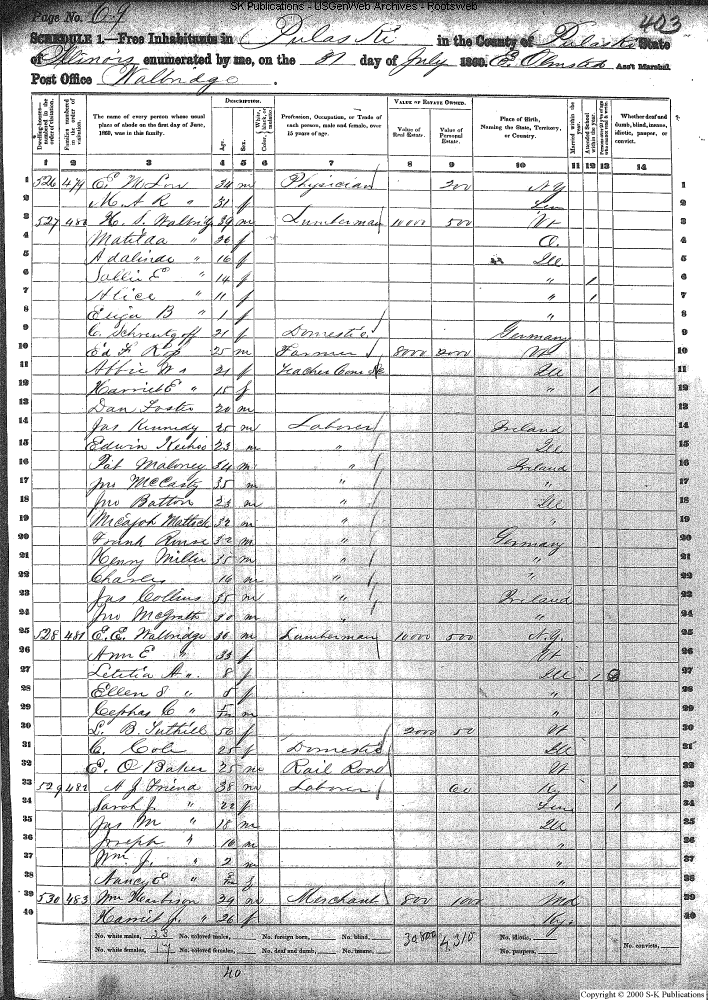 SK Publications - USGenWeb Archives - Rootsweb
Page No. 69
403
SCHEDULE 1.—Free Inhabitants in Pulaski in the County of Pulaski State
of Illinois enumerated by me, on the 31 day of July 1860. E. Olmsted Ass't Marshal.
Post Office Walbridge.
Dwelling-houses—numbered in the order of visitation.
Families numbered in the order of visitation.
The name of every person whose usual place of abode on the first day of June, 1860, was in this family.
DESCRIPTION.
Age.
Sex.
Color, White, black, or mulatto.
Profession, Occupation, or Trade of each person, male and female, over 15 years of age.
VALUE OF ESTATE OWNED.
Value of Real Estate.
Value of Personal Estate.
Place of Birth, Naming the State, Territory, or Country.
Married within the year.
Attended School within the year.
Whether deaf and dumb, blind, insane, idiotic, pauper, or convict.
1 2 3 4 5 6 7 8 9 10 11 12 13 14
1 526 479 E. M. Low 34 m Physician 300 N.Y. 1
2 M. A. R " 31 f 2
3 527 480 H. S. Walbridge 39 m Lumberman 10000 500 Vt 3
4 Matilda " 36 f O. 4
5 Adalinda " 16 f Ill 5
6 Sallie E " 14 f " / 6
7 Alice " 11 f " / 7
8 Eliza B " 1 f " 8
9 C. 21 f Domestic Germany 9
10 Ed F. 25 m Farmer 8000 2000 Vt 10
11 Abbie 21 f Teacher Ill 11
12 Harriet E " 15 f " / 12
13 Dan Foster 20 m 13
14 Jas Kennedy 25 m Laborer Ireland 14
15 Edwin 23 m " Ill 15
16 Pat Maloney 34 m " Ireland 16
17 Jno McCarty 35 m " " 17
18 Jno Batton 23 m " Ill 18
19 Mattock 32 m " " 19
20 Frank 32 m " Germany 20
21 Henry Miller 35 m " " 21
22 Charles 16 m " " 22
23 Jas Collins 35 m " Ireland 23
24 Jno McGrath 30 m " " 24
25 528 481 E. E. Walbridge 36 m Lumberman 10000 500 N.Y. 25
26 Ann E " 33 f Vt 26
27 Letitia A " 8 f Ill / 27
28 Ellen S " 5 f " 28
29 Cephas C " m " 29
30 L. B. Tuthill 56 f 2000 50 Vt 30
31 C. Cole 25 f Domestic Ill 31
32 E. O Baker 25 m Rail Road Vt 32
33 529 482 A J Friend 38 m Laborer 60 Ky / 33
34 Sarah J. " 22 f / 34
35 Jas M " 18 m Ill 35
36 Joseph " 16 m " 36
37 Wm J. " 2 m " 37
38 Nancy E " f " 38
39 530 483 Wm 39 m Merchant 800 1000 Md 39
40 Harriet J. " 26 f Ky. 40
No. white males, 23 No. colored males, No. foreign born, No. blind, No. idiotic,
No. white females, 17 No. colored females, No. deaf and dumb, No. insane, No. paupers, No. convicts,
30800 4,310
40
Copyright © 2000 S-K Publications